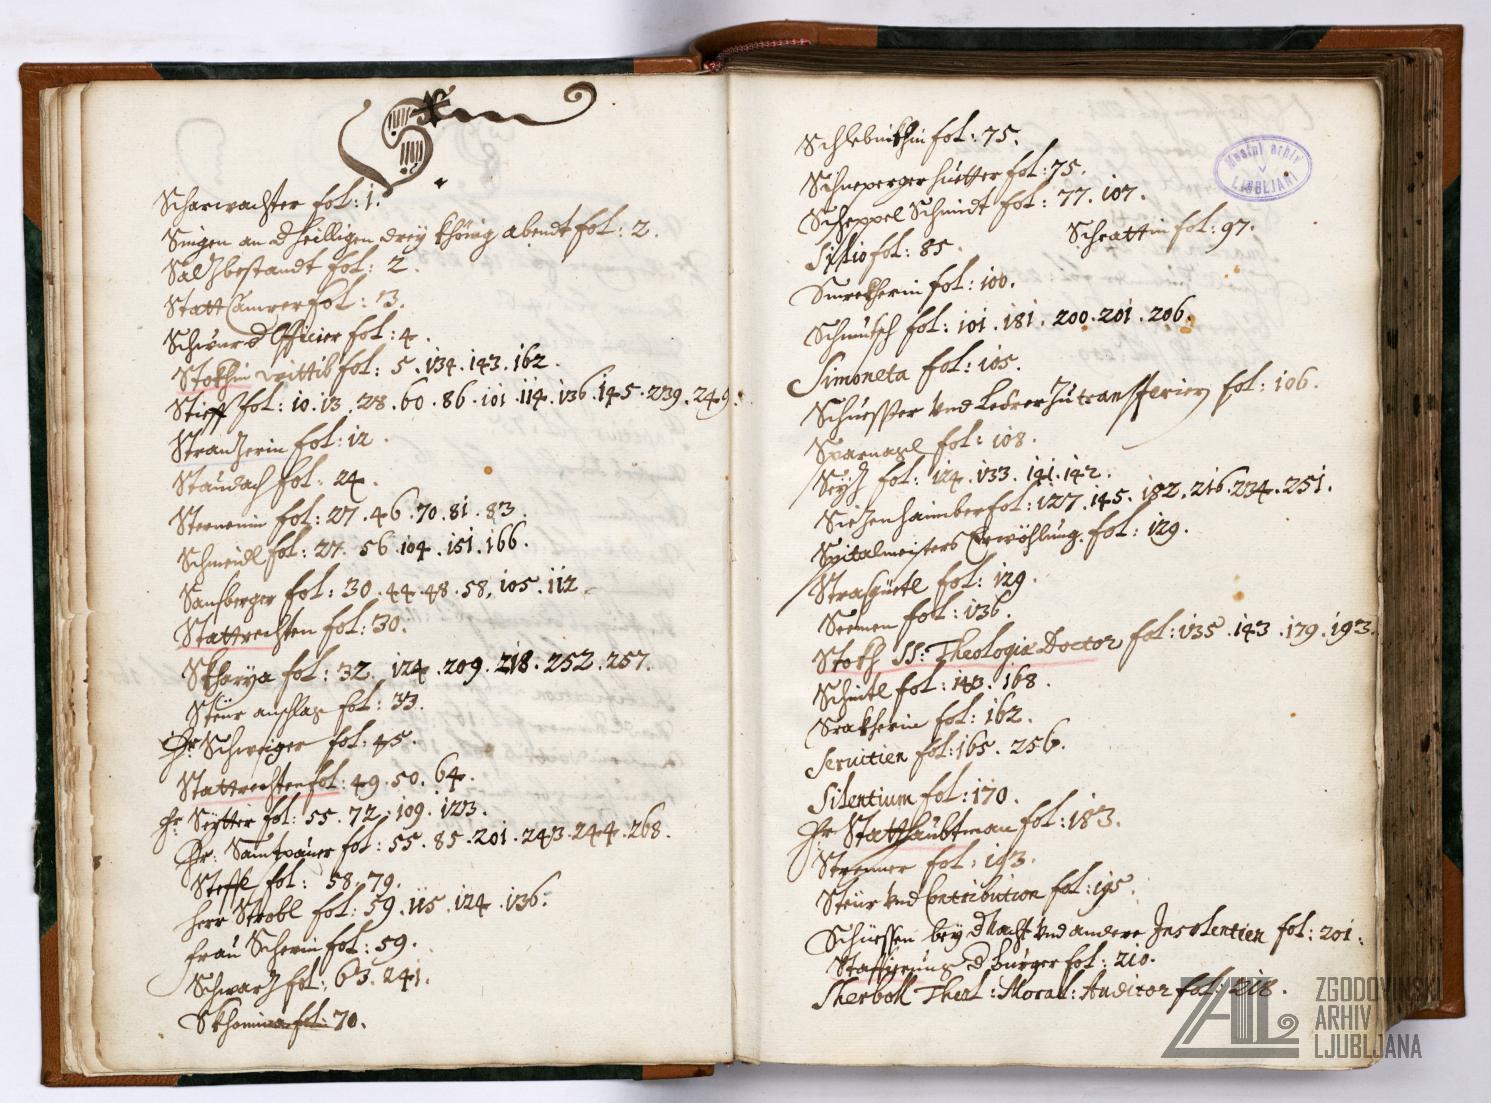 Scharwachter fol: 1.
Singen an d heilligen dreÿ Khönig abendt fol: 2.
Salzbestandt fol: 2.
Statt Camrer fol: 3.
fol: 4.
Stokhin wittib fol: 5. 134. 143. 162.
Stieff fol: 10. 13. 28. 60. 86. 101. 114. 136. 145. 239. 249.
Stranzerin fol: 12.
Staudach fol: 24.
fol: 27. 46. 70. 81. 83.
Schmeidl fol: 27. 56. 104. 151. 166.
Sansberger fol: 30. 44. 48. 58. 105. 112.
Stattrechten fol: 30.
Skharya fol: 32. 124. 209. 218. 252. 257.
Steur anschlag fol: 33.
Hr: Schweiger fol: 45.
Stattrechten fol: 49. 50. 64.
Hr: fol: 55. 72. 109. 123.
Hr: fol: 55. 85. 201. 243. 244. 268.
Steffl fol: 58. 79.
herr Strobl fol: 59. 115. 124. 136.
frau fol: 59.
Schwarz fol: 63. 241.
fol: 70.
fol: 75.
Schneperger huetter fol: 75.
Scheppel Schmidt fol: 77. 107.
fol: 85. Schrattin fol: 97.
Smrekherin fol: 100.
fol: 101. 181. 200. 201. 206.
Simoneta fol: 105.
Schuesster vnd Ledrer zu transferiern fol: 106.
fol: 108.
Seÿz fol: 124. 133. 141. 142.
Siezenhaimber fol: 127. 145. 182. 216. 234. 251.
Spitalmeisters Erwöhlung fol: 129.
fol: 129.
fol: 136.
Stokh SS: Theologiæ Doctor fol: 135. 143. 179. 193.
fol: 143. 168.
Srakherin fol: 162.
Seruitien fol: 165. 256.
Silentium fol: 170.
Hr: Statthaubtman fol: 183.
fol: 193.
Steur vnd Contribution fol: 195.
Schüessen beÿ d Nacht vnd andere Insolentien fol: 201.
d burger fol: 210.
Skerbokh Theol: Moral: Auditor fol: 218.
Mestni arhiv
V
LJUBLJANI
ZAL
ZGODOVINSKI
ARHIV
LJUBLJANA